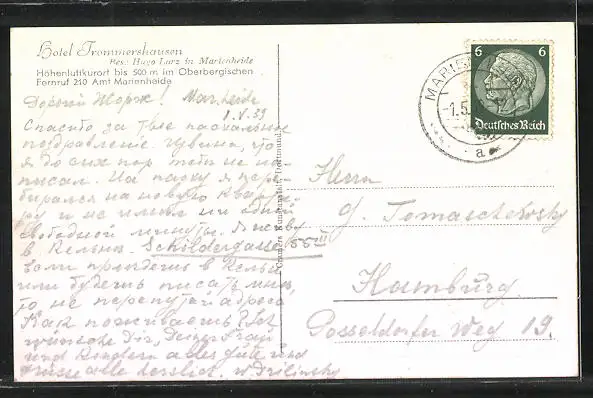 Hotel Trommershausen
Bes.: Hugo Lurz in Marienheide
Höhenluftkurort bis 500 m im Oberbergischen
Fernruf 210 Amt Marienheide
Дорогой Жорж! Marheide
1.V.39
Спасибо за твое пасхальное
поздравление. Извини, что
я до сих пор тебе не на-
писал. На пасху я пере-
бирался на новую кварти-
ру и не имел ни одной
свободной минуты. Я живу
в Кельне. Schildergasse 55 III
Если приедешь в Кельн
или будешь писать мне,
то не перепутай адреса
Как поживаешь? Ich
wünsche Dir, Deiner Frau
und Kindern alles gute und
grüsse alle herzlich. W Drilinsky
Kunstanstalt, Dortmund
MARIEN
-1.5.
a
6 6
Deutsches Reich
Herrn
G. Tomaschewsky
Hamburg
Gosseldorfer Weg 19.